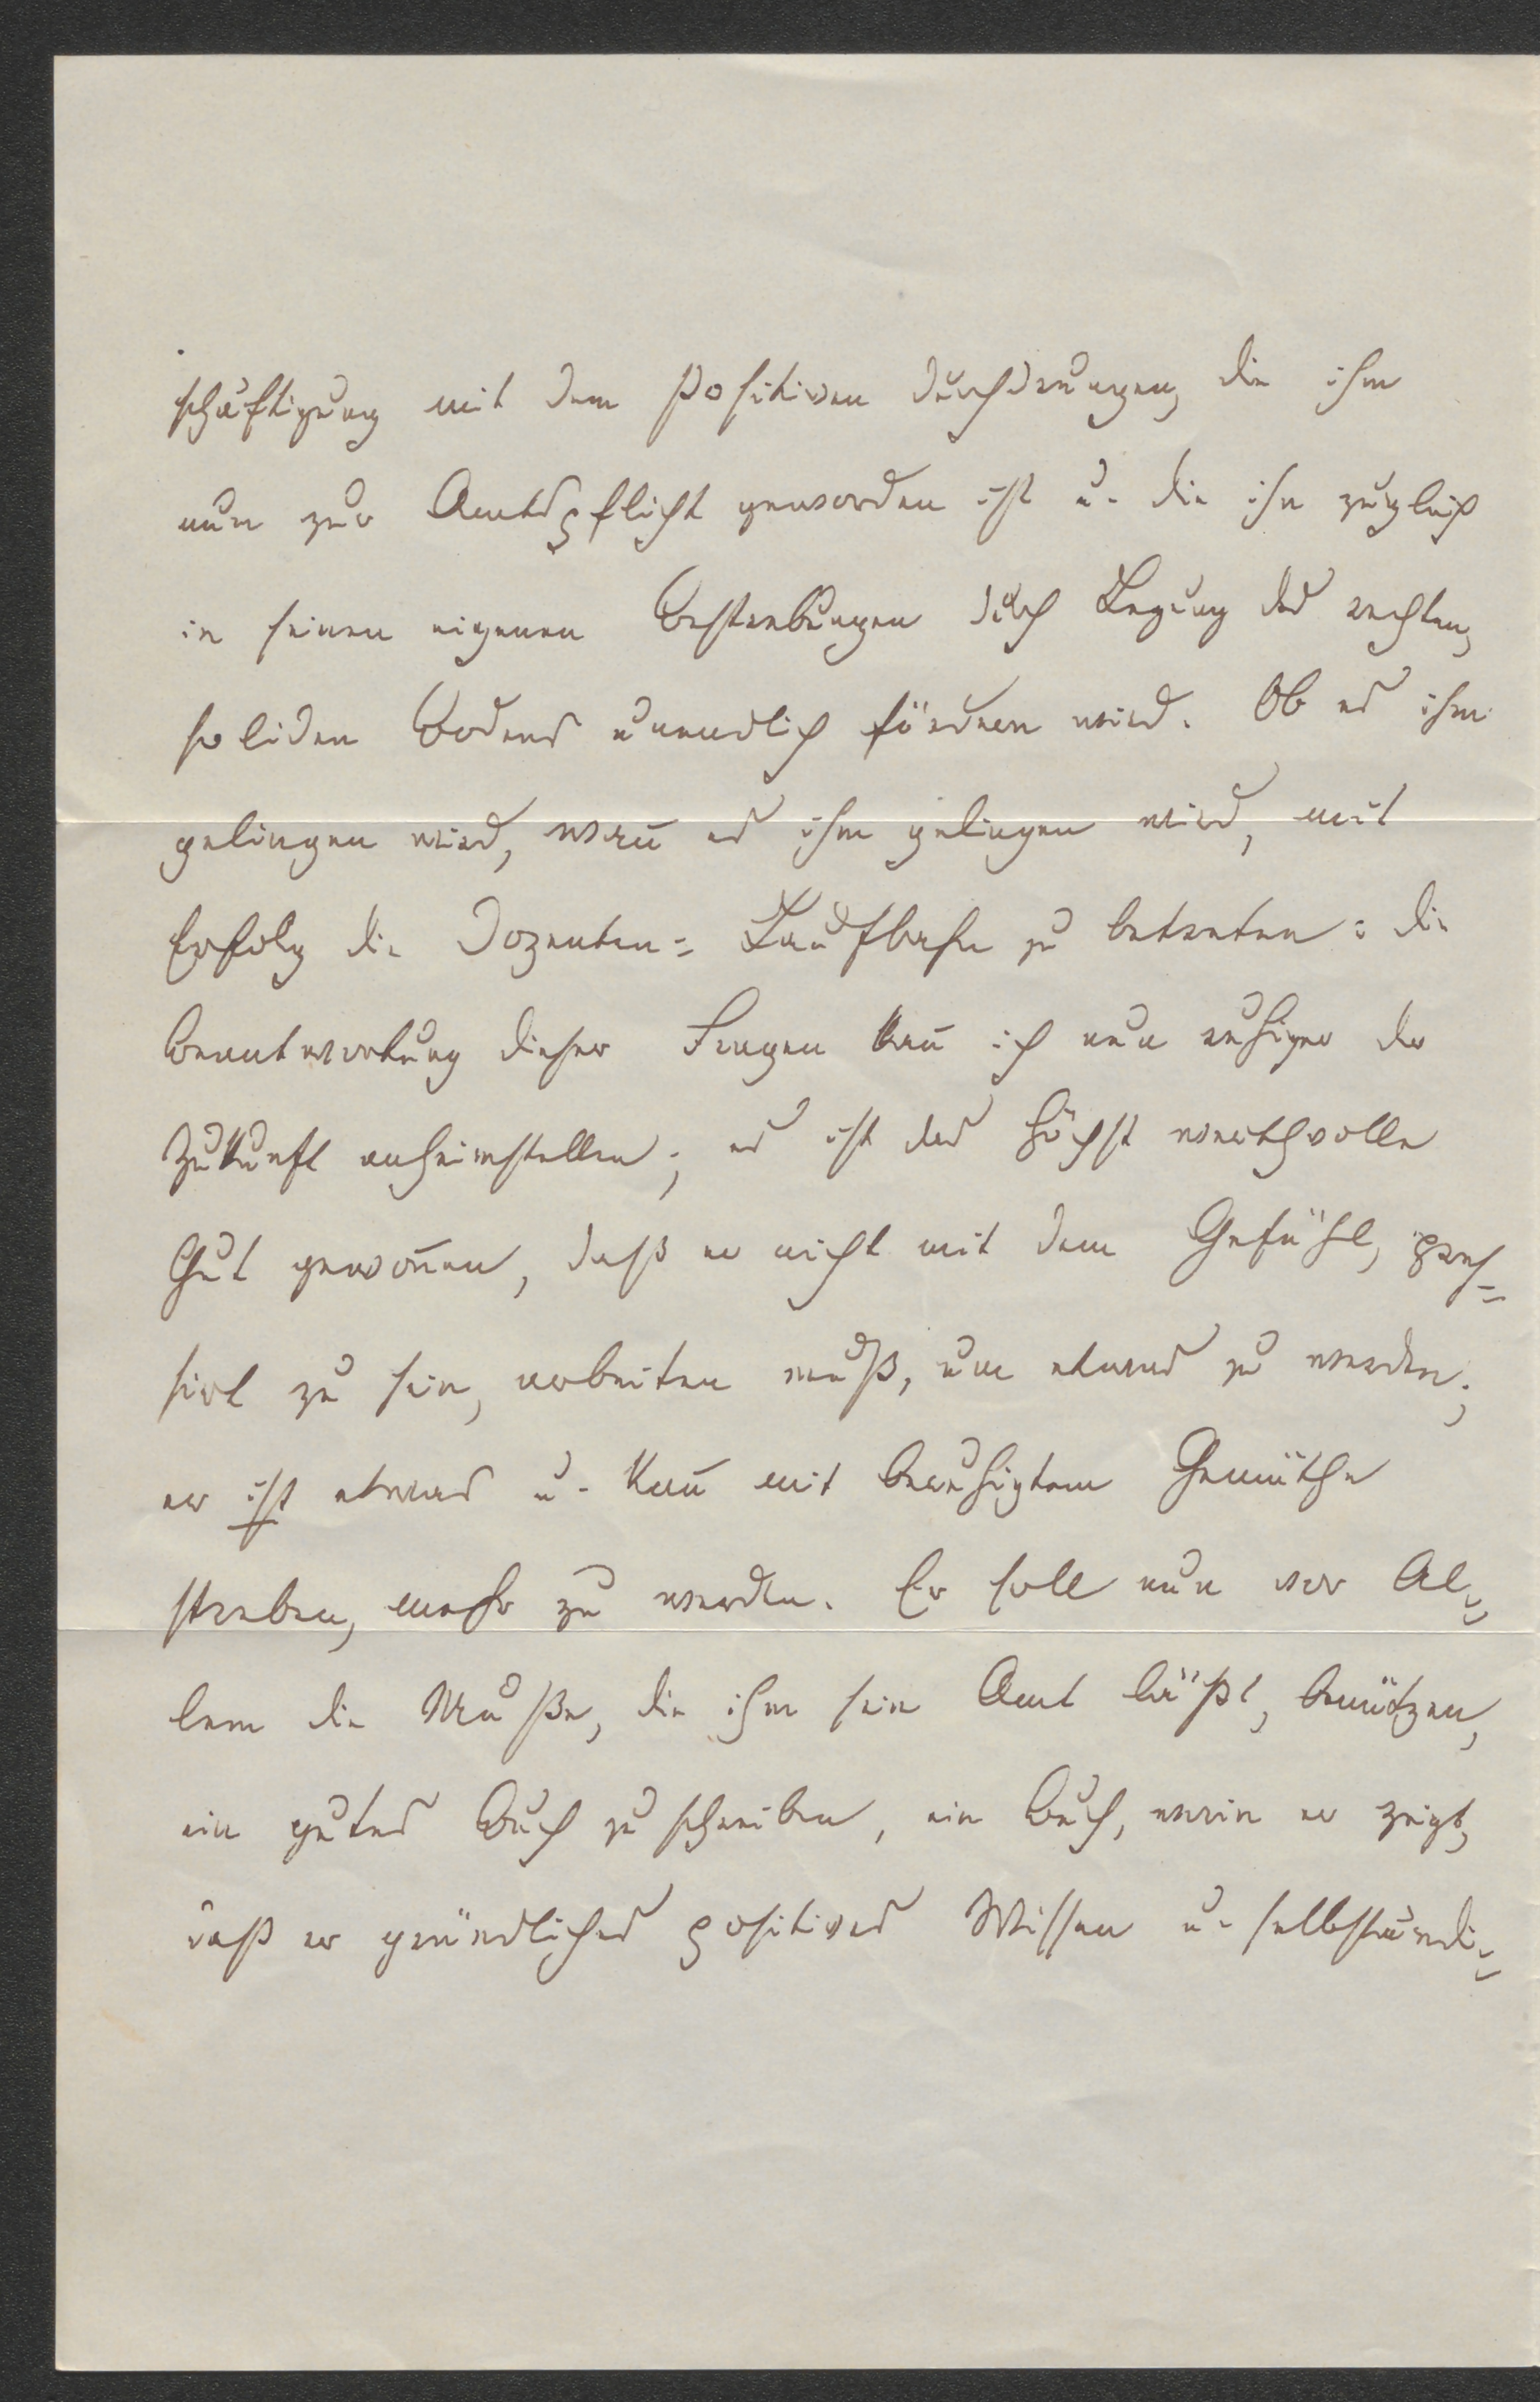 schäftigung mit dem Positiven durchdrungen, die ihm
nun zur Amtspflicht geworden ist u. die ihn zugleich
in seinen eigenen Bestrebungen durch Legung des rechten,
soliden Bodens unendlich fördern wird. Ob es ihm
gelingen wird, wañ es ihm gelingen wird, mit
Erfolg die Dozenten= Laufbahn zu betreten: die
Beantwortung dieser Fragen kañ ich nun ruhiger der
Zukunft anheimstellen; es ist das höchst werthvolle
Gut gewoñen, daß er nicht mit dem Gefühl, pres=
sirt zu sein, arbeiten muß, um etwas zu werden;
er ist etwas u. kañ mit beruhigtem Gemüthe
streben, mehr zu werden. Er soll nun vor Al=
lem die Muße, die ihm sein Amt läßt, benützen,
ein gutes Buch zu schreiben, ein Buch, worin er zeigt,
daß er gründliches positives Wissen u. selbständi=